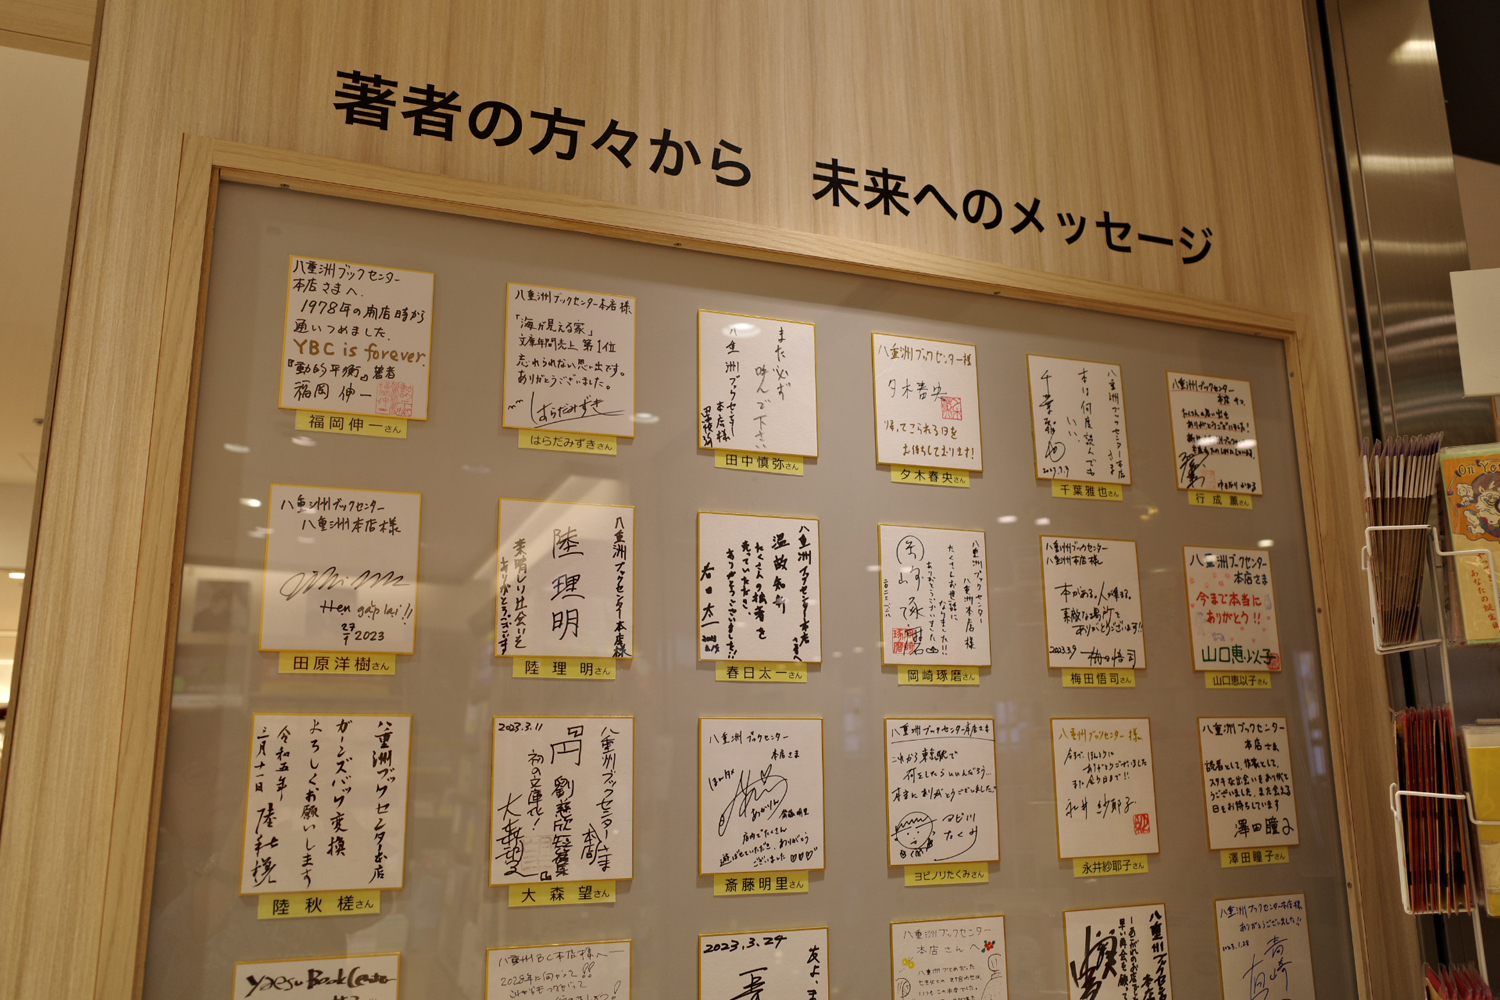 著者の方々から 未来へのメッセージ
八重洲ブックセンター
本店さまへ
1978年の開店時から
通いつめました
YBC is forever.
『動的平衡』著者
福岡伸一
福岡伸一さん
八重洲ブックセンター本店様
「海が見える家」
文庫年間売上 第1位
忘れられない思い出です。
ありがとうございました。
はらだみずき
はらだみずきさん
また必ず
呼んで下さい
八重洲ブックセンター
本店様
田中慎弥さん
八重洲ブックセンター様
夕木春央
帰ってこられる日を
お待ちしております!
夕木春央さん
八重洲ブックセンター本店さま
本は何度読んでも
いい
千葉雅也さん
八重洲ブックセンター
本店
行成薫さん
八重洲ブックセンター
八重洲本店様
Hẹn gặp lại!!
2023
田原洋樹さん
八重洲ブックセンター本店様
陸理明
素晴しい出会いを
ありがとうございます
陸理明さん
八重洲ブックセンター本店
温故知新
たくさんの拙著を
売っていただき、
ありがとうございました!!
春日太一
春日太一さん
八重洲ブックセンター
八重洲本店様
たくさんお世話に
なりました!!
ありがとうございました
岡崎琢磨さん
八重洲ブックセンター
八重洲本店様
本がある。人が集まる。
素敵な場所を
ありがとうございます!!
2023.3.9 梅田悟司
梅田悟司さん
八重洲ブックセンター
本店さま
今まで本当に
ありがとう!!
山口恵以子
山口恵以子さん
八重洲ブックセンター本店
ガーンズバック変換
よろしくお願いします
令和五年
三月十一日 陸秋槎
陸秋槎さん
2023.3.11
八重洲ブックセンター本店さま
円 劉慈欣短篇集
初の文庫化!
大森望
大森望さん
八重洲ブックセンター
本店さま
斎藤明里
店内でたくさん
遊ばせていただき、ありがとう
ございました♡♡♡
斎藤明里さん
八重洲ブックセンター本店さま
これから東京駅で
何をしたらいいんだろう…
本当にありがとうございました
ヨビノリたくみ
ヨビノリたくみさん
八重洲ブックセンター様
今まで、ほんとうに
ありがとうございました
また会う日まで!!
永井紗耶子
永井紗耶子さん
八重洲ブックセンター
本店さま
読者として、作家として、
ステキな出会いをありがとう
ございました。また会える
日をお待ちしています
澤田瞳子
澤田瞳子さん
Yaesu Book Center
八重洲BC本店様へ
2028年に向かって!!
2023.3.24
八重洲ブックセンター
本店さんへ
八重洲ブックセンター本店様
ありがとうございました!!